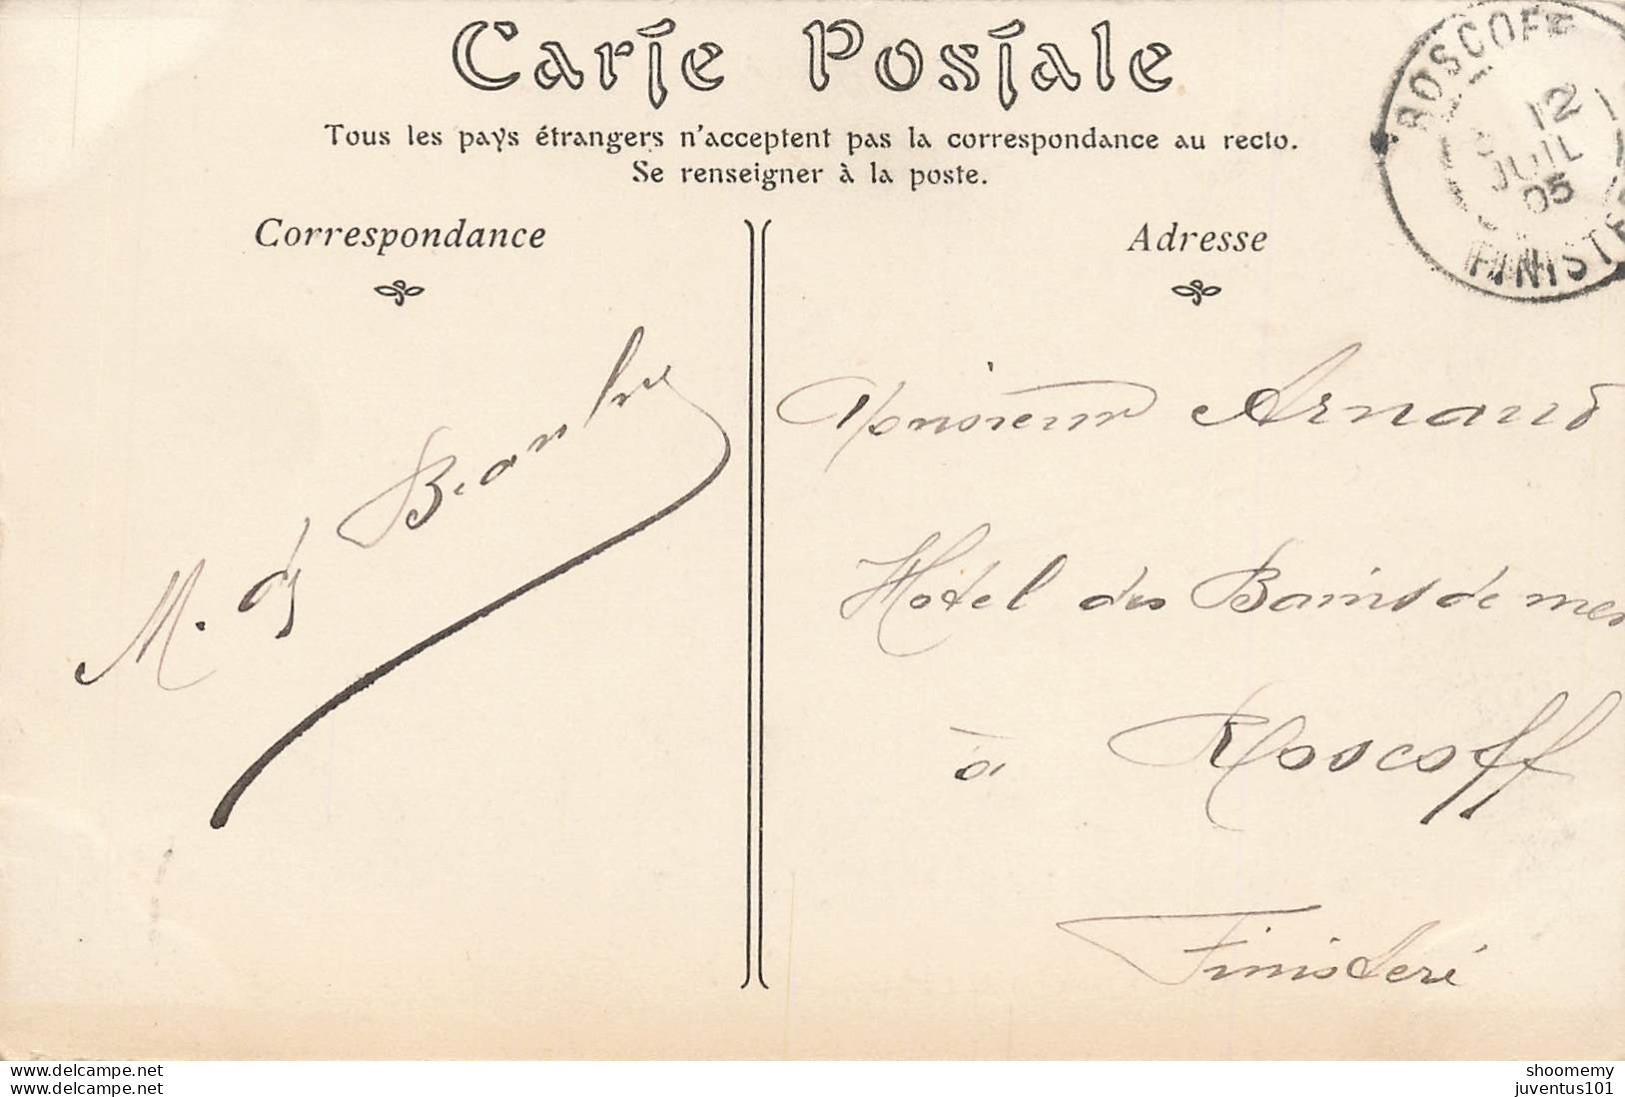 Carte Postale
Tous les pays étrangers n'acceptent pas la correspondance au recto.
Se renseigner à la poste.
Correspondance
Adresse
ROSCOFF
12
JUIL
05
FINISTE
M.
Monsieur Arnaud
Hôtel des Bains de mer
à Roscoff
Finistere
www.delcampe.net
www.delcampe.net
shoomemy
juventus101